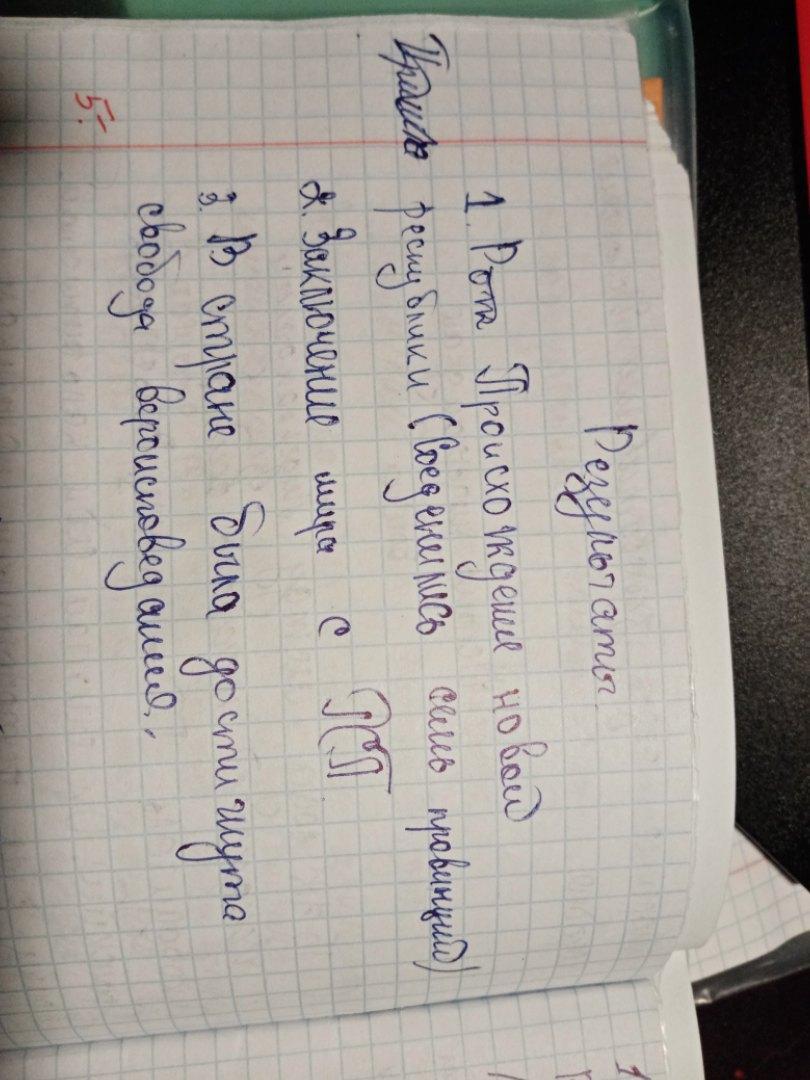 Результаты.
1. Рож Происхождение новой
республики (Соеденились семь провинций)
2. Заключение мира с
3. В стране была достигнута
свобода вероисповедания.
5-